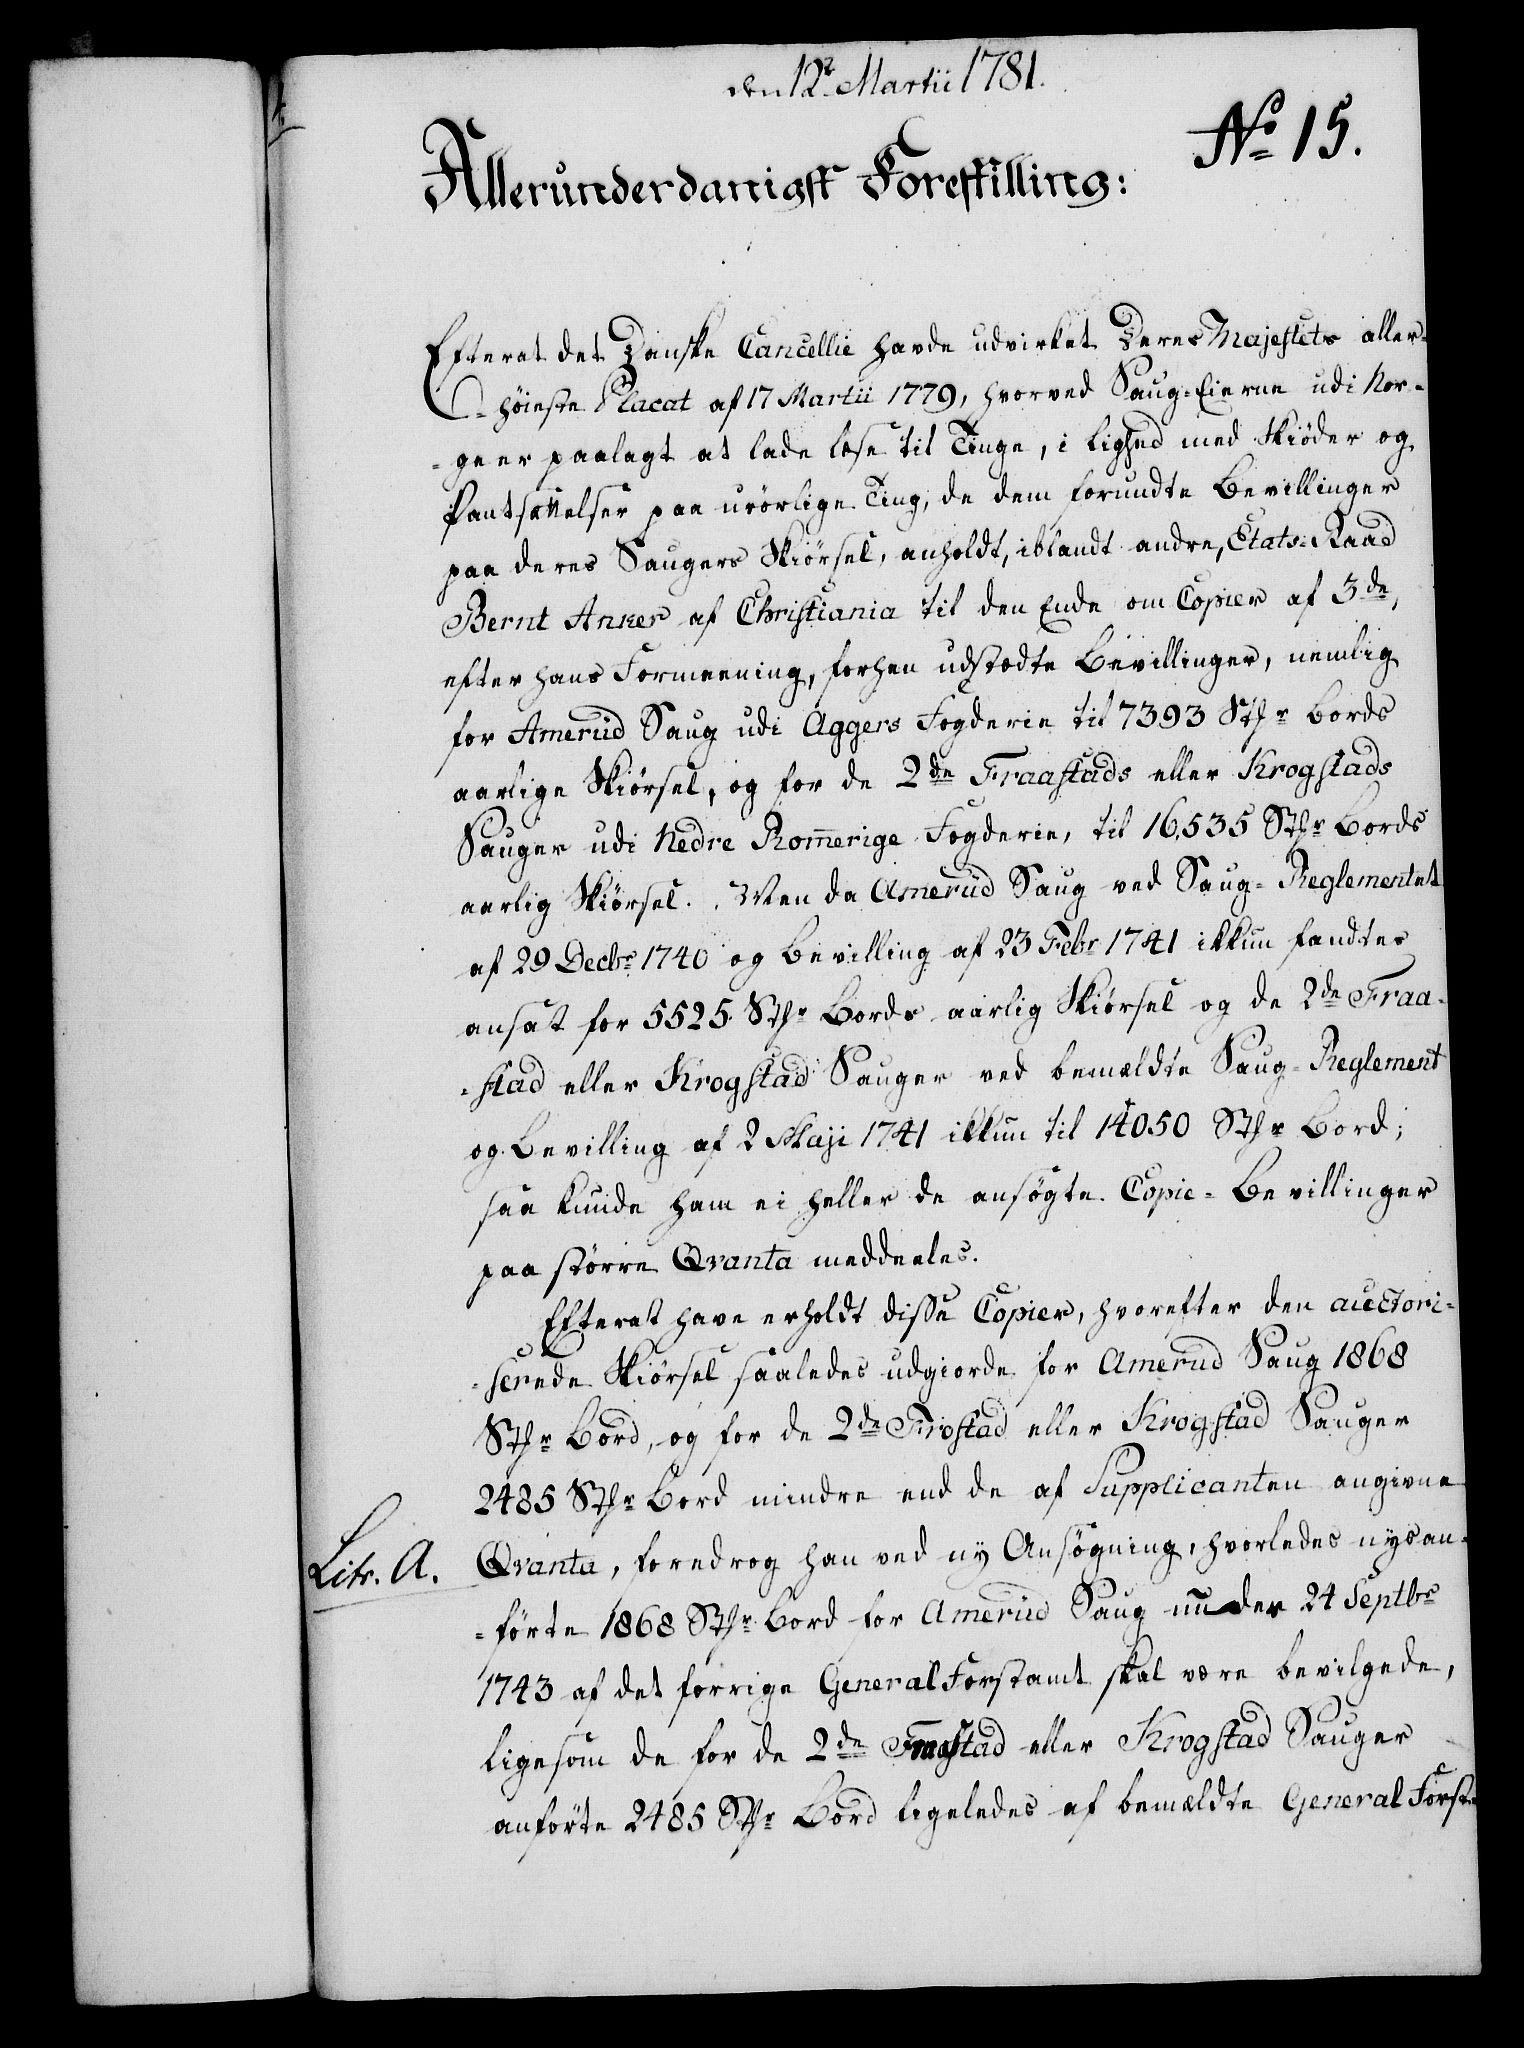 den 12te Martii 1781.
No 15.
Allerunderdanigst Forestilling:
Efterat det Danske Cancellie havde udvirket Deres Majestets aller-
-høieste Placat af 17 Martii 1779, hvorved Saug-Eierne udi Nor-
-ge er paalagt at lade læse til Tinge, i lighed med Skiøder og
Pantsættelser paa urörlige Ting, de dem forundte Bevillinger
paa deres Saugers Skiørsel, anholdt, iblandt andre, Etats-Raad
Bernt Anker af Christiania til den Ende om Copier af 3de,
efter hans Formeening, forhen udstædte Bevillinger, nemlig
for Amerud Saug udi Aggers Fogderie til 7393 Sthr Bords
aarlige Skiørsel, og for de 2de Fraastads eller Krogstads
Sauger udi Nedre Rommerige Fogderie, til 16,535 Sthr Bords
aarlig Skiørsel. Men da Amerud Saug ved Saug-Reglementet
af 29 Decbr 1740 og Bevilling af 23 Febr 1741 ikkun fandtes
ansat for 5525 Sthr Bords aarlig Skiørsel og de 2de Fraa-
-stad eller Krogstad Sauger ved bemældte Saug-Reglement
og Bevilling af 2 Maji 1741 ikkun til 14050 Sthr Bord;
saa kunde ham ei heller de ansøgte Copie-Bevillinger
paa större Qvanta meddeeles.
Efterat have erholdt disse Copier, hvorefter den auctori-
-serede Skiørsel saaledes udgiorde for Amerud Saug 1868
Sthr Bord, og for de 2de Frostad eller Krogstad Sauger
2485 Sthr Bord mindre end de af Supplicanten angivne
Litr. A.
Qvanta, foredrog han ved ny Ansøgning, hvorledes nysan-
-förte 1868 Sthr Bord for Amerud Saug under 24 Septbr
1743 af det forrige General Forstamt skal være bevilgede,
ligesom de for de 2de Fraastad eller Krogstad Sauger
anförte 2485 Sthr Bord ligeledes af bemældte General Forst-